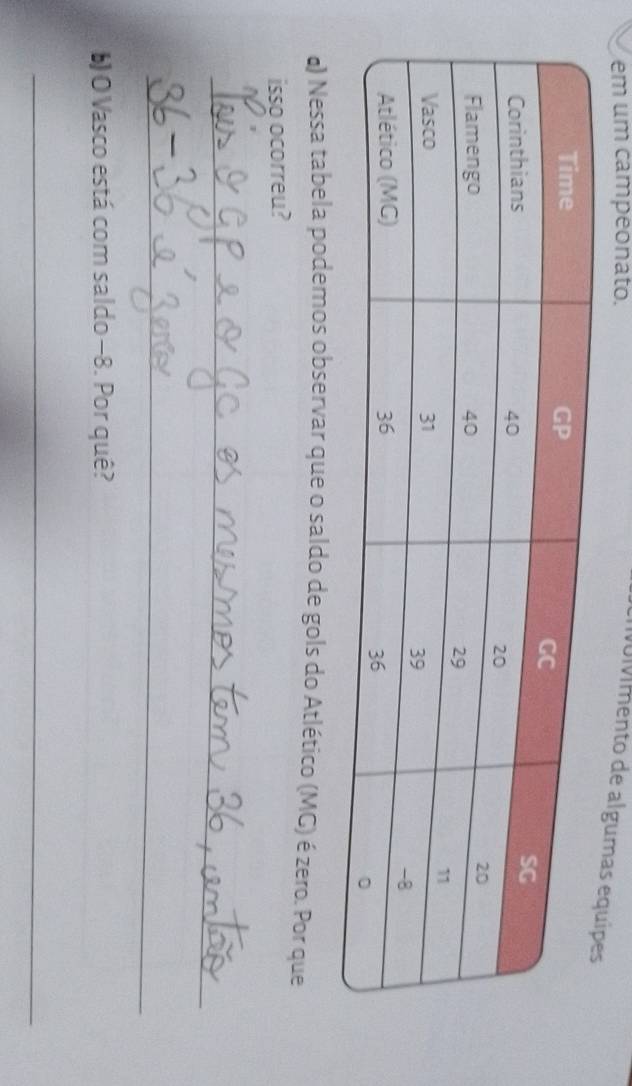 em um campeonato.
volvimento de algumas equipes
Time GP GC SG
Corinthians 40 20 20
Flamengo 40 29 11
Vasco 31 39 -8
Atlético (MG) 36 36 0
a) Nessa tabela podemos observar que o saldo de gols do Atlético (MG) é zero. Por que
isso ocorreu?
o GP e o GC os mesmos tem 36, então
36 - 36 é zero
b) O Vasco está com saldo -8. Por quê?